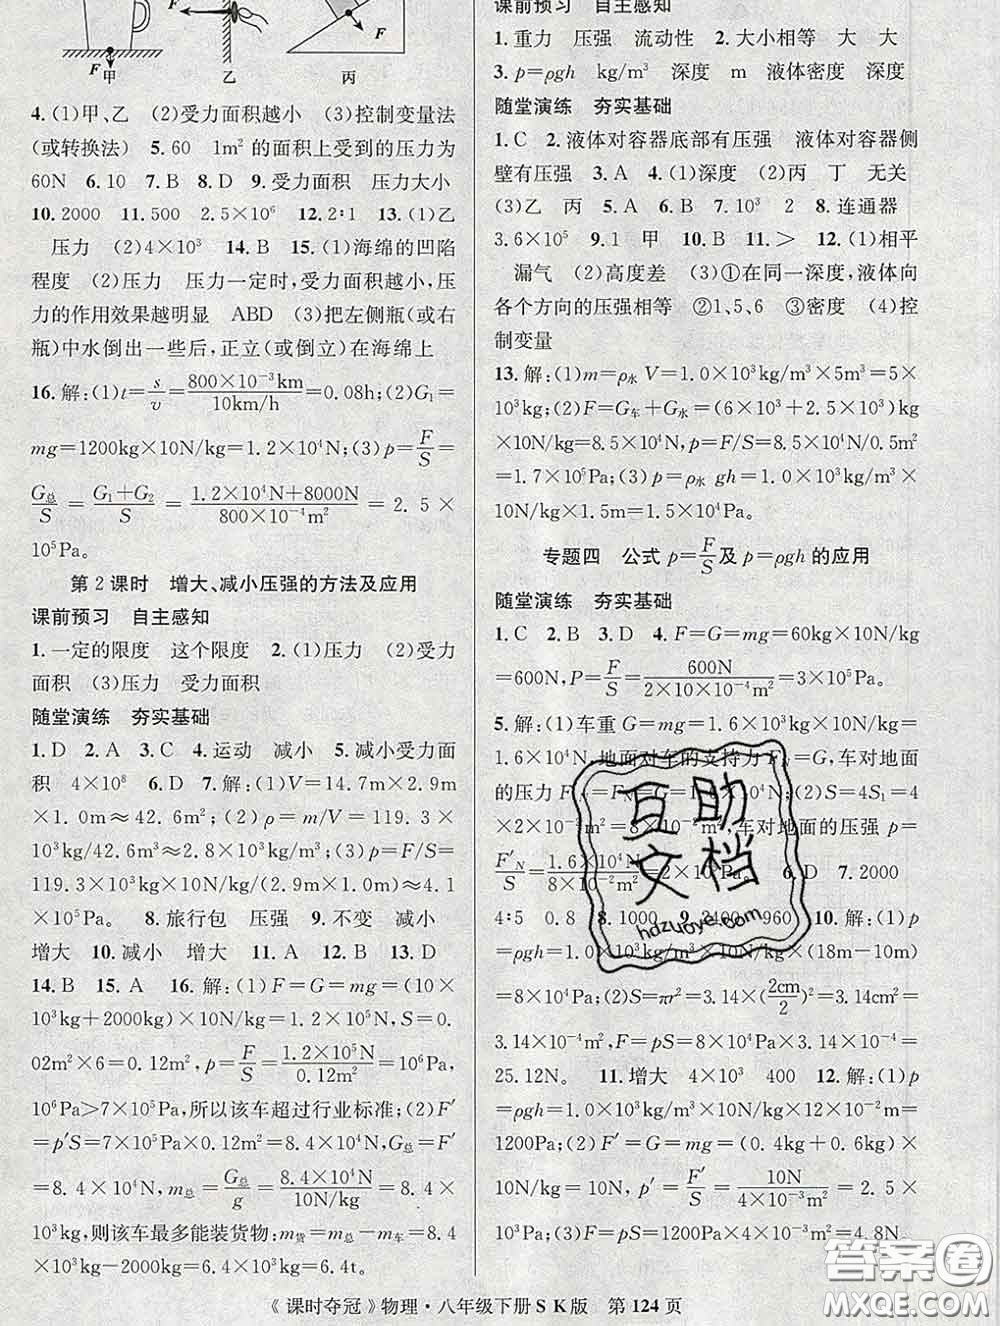 F 甲 乙 F 丙
4.(1)甲、乙 (2)受力面积越小 (3)控制变量法
(或转换法) 5.60 1m²的面积上受到的压力为
60N 6.10 7.B 8.D 9.受力面积 压力大小
10.2000 11.500 2.5×10⁶ 12.2∶1 13.(1)乙
压力 (2)4×10³ 14.B 15.(1)海绵的凹陷
程度 (2)压力 压力一定时,受力面积越小,压
力的作用效果越明显 ABD (3)把左侧瓶(或右
瓶)中水倒出一些后,正立(或倒立)在海绵上
16.解:(1)t=s/v=800×10⁻³km/10km/h=0.08h;(2)G₁=
mg=1200kg×10N/kg=1.2×10⁴N;(3)p=F/S=
G总/S=(G₁+G₂)/S=(1.2×10⁴N+8000N)/(800×10⁻⁴m²)=2.5×
10⁵Pa。
第2课时 增大、减小压强的方法及应用
课前预习 自主感知
1.一定的限度 这个限度 2.(1)压力 (2)受力
面积 (3)压力 受力面积
随堂演练 夯实基础
1.D 2.A 3.C 4.运动 减小 5.减小受力面
积 4×10⁸ 6.D 7.解:(1)V=14.7m×2.9m
×1.0m≈42.6m³;(2)ρ=m/V=119.3×
10³kg/42.6m³≈2.8×10³kg/m³;(3)p=F/S=
119.3×10³kg×10N/kg/(2.9m×1.0m)≈4.1
×10⁵Pa 8.旅行包 压强 9.不变 减小
增大 10.减小 增大 11.A 12.B 13.D
14.B 15.A 16.解:(1)F=G=mg=(10×
10³kg+2000kg)×10N/kg=1.2×10⁵N,S=0.
02m²×6=0.12m²,p=F/S=1.2×10⁵N/0.12m²=10⁶Pa,
10⁶Pa>7×10⁵Pa,所以该车超过行业标准;(2)F′
=p′S=7×10⁵Pa×0.12m²=8.4×10⁴N,G总=F′
=8.4×10⁴N,m总=G总/g=8.4×10⁴N/10N/kg=8.4×
10³kg,则该车最多能装货物:m货=m总-m车=8.4
×10³kg-2000kg=6.4×10³kg=6.4t。
课前预习 自主感知
1.重力 压强 流动性 2.大小相等 大 大
3.p=ρgh kg/m³ 深度 m 液体密度 深度
随堂演练 夯实基础
1.C 2.液体对容器底部有压强 液体对容器侧
壁有压强 3.A 4.(1)深度 (2)丙 丁 无关
(3)乙 丙 5.A 6.B 7.10³ 2 8.连通器
3.6×10⁵ 9.1 甲 10.B 11.> 12.(1)相平
漏气 (2)高度差 (3)①在同一深度,液体向
各个方向的压强相等 ②1、5、6 ③密度 (4)控
制变量
13.解:(1)m=ρ水V=1.0×10³kg/m³×5m³=5×
10³kg;(2)F=G车+G水=(6×10³+2.5×10³)kg
×10N/kg=8.5×10⁴N,p=F/S=8.5×10⁴N/0.5m²
=1.7×10⁵Pa;(3)p=ρ水gh=1.0×10³kg/m³×
10N/kg×1.5m=1.5×10⁴Pa。
专题四 公式p=F/S及p=ρgh的应用
随堂演练 夯实基础
1.C 2.B 3.D 4.F=G=mg=60kg×10N/kg
=600N,P=F/S=600N/(2×10×10⁻⁴m²)=3×10⁵Pa。
5.解:(1)车重G=mg=1.6×10³kg×10N/kg=
1.6×10⁴N,地面对车的支持力F N=G,车对地面
的压力F′N=F N=1.6×10⁴N;(2)S=4S₁=4
×2×10⁻²m²=8×10⁻²m²,车对地面的压强p=
F′N/S=1.6×10⁴N/(8×10⁻²m²)=2×10⁵Pa 6.D 7.2000
4∶5 0.8 8.1000 9.2400 960 10.解:(1)
p=ρgh=1.0×10³kg/m³×10N/kg×(18m-10m)
=8×10⁴Pa;(2)S=πr²=3.14×(2cm/2)²=
3.14×10⁻⁴m²,F=pS=8×10⁴Pa×3.14×10⁻⁴m²=
25.12N。 11.增大 4×10³ 400 12.解:(1)p
=ρgh=1.0×10³kg/m³×10N/kg×12×10⁻²m=
1200Pa;(2)F′=G=mg=(0.4kg+0.6kg)×
10N/kg=10N,p′=F′/S=10N/(4×10⁻³m²)=2.5×
10³Pa;(3)F=pS=1200Pa×4×10⁻³m²=4.8N。
互助
文档
hdzuoye.com
答案圈
MXQE.COM
《课时夺冠》物理·八年级下册SK版 第124页